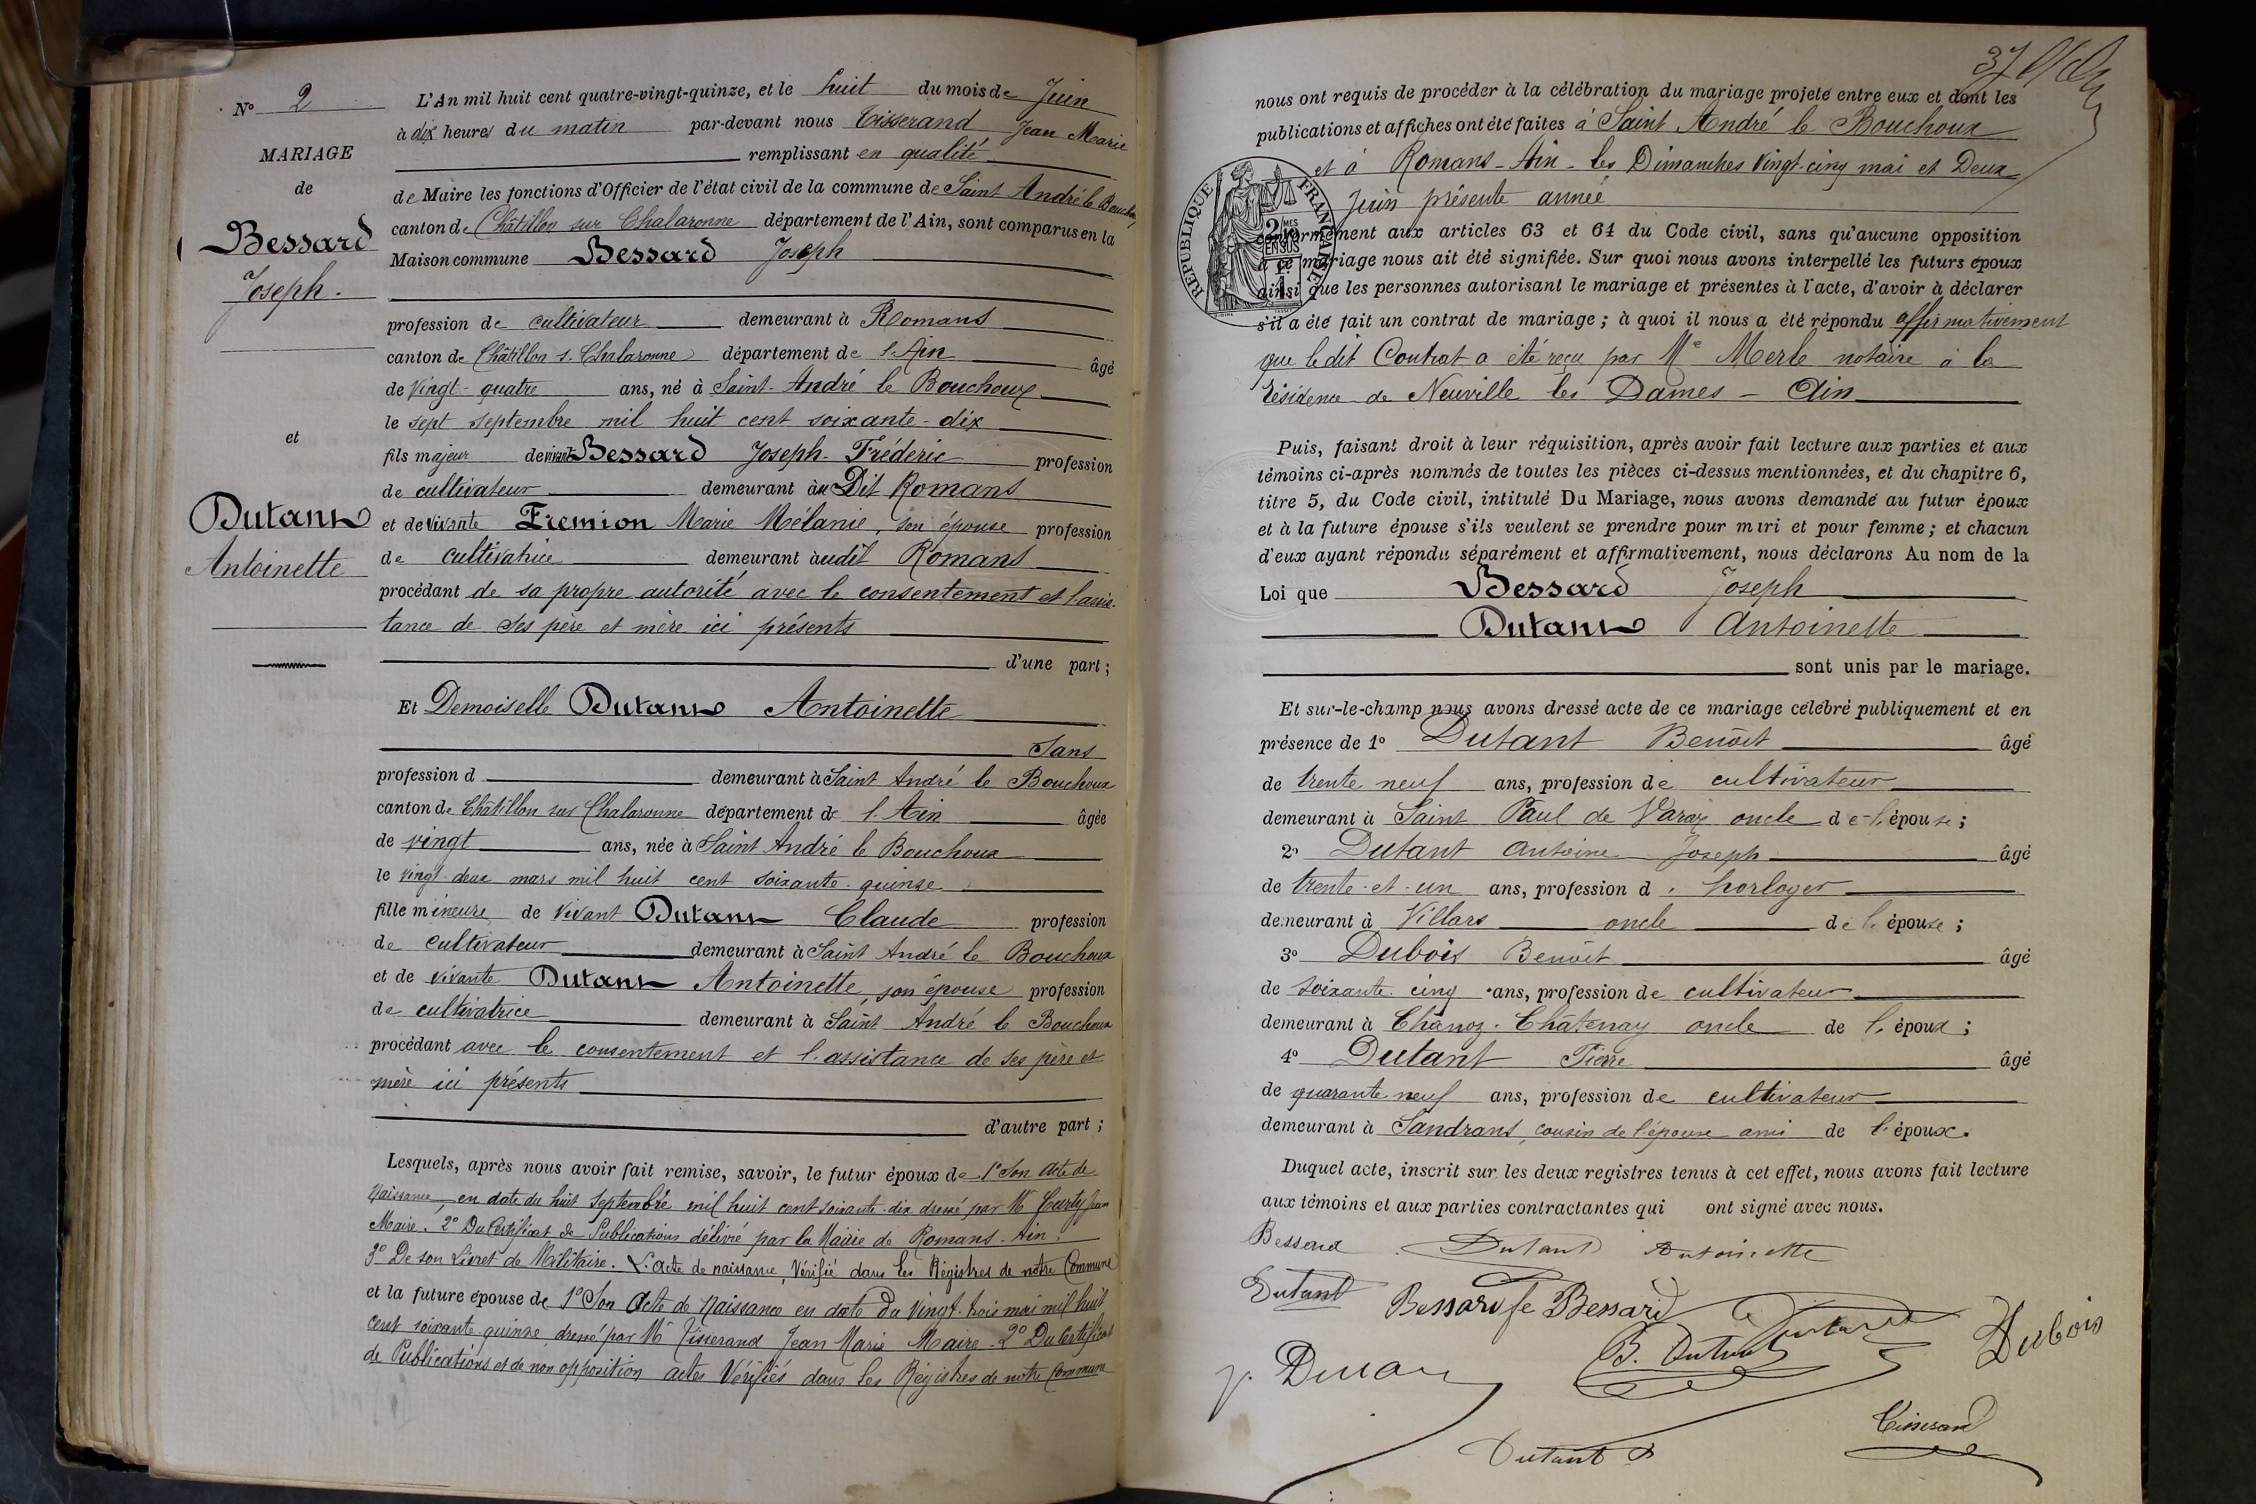 N° 2
MARIAGE
de
Bessard
Joseph.
et
Dutant
Antoinette
L'An mil huit cent quatre-vingt-quinze, et le huit du mois de Juin
à dix heures du matin par-devant nous Tisserand Jean Marie
remplissant en qualité
de Maire les fonctions d'Officier de l'état civil de la commune de Saint André le Bouchoux
canton de Châtillon sur Chalaronne département de l'Ain, sont comparus en la
Maison commune Bessard Joseph
profession de cultivateur demeurant à Romans
canton de Châtillon s. Chalaronne département de l'Ain âgé
de vingt-quatre ans, né à Saint-André le Bouchoux
le sept septembre mil huit cent soixante-dix
fils majeur de vivant Bessard Joseph-Fréderic profession
de cultivateur demeurant au Dit Romans
et de vivante Fremion Marie Mélanie, son épouse profession
de cultivatrice demeurant audit Romans
procédant de sa propre autorité avec le consentement et l'assis-
tance de ses père et mère ici présents
d'une part ;
Et Demoiselle Dutant Antoinette
Sans
profession d demeurant à Saint André le Bouchoux
canton de Châtillon sur Chalaronne département de l'Ain âgée
de vingt ans, née à Saint André le Bouchoux
le vingt-deux mars mil huit cent soixante-quinze
fille mineure de vivant Dutant Claude profession
de cultivateur demeurant à Saint André le Bouchoux
et de vivante Dutant Antoinette, son épouse profession
de cultivatrice demeurant à Saint André le Bouchoux
procédant avec le consentement et l'assistance de ses père et
mère ici présents
d'autre part ;
Lesquels, après nous avoir fait remise, savoir, le futur époux de 1° Son acte de
Naissance en date du huit Septembre mil huit cent soixante-dix dressé par Mr Jean
Maire. 2° Du Certificat de Publications délivré par la Mairie de Romans-Ain.
3° De son Livret de Militaire. L'acte de naissance, Vérifié dans les Régistres de notre Commune
et la future épouse de 1° Son Acte de Naissance en date du Vingt-trois mai mil huit
cent soixante quinze dressé par Mr Tisserand Jean Marie Maire. 2° Du Certificat
de Publications et de non opposition actes Vérifiés dans les Régistres de notre Commune
37
nous ont requis de procéder à la célébration du mariage projeté entre eux et dont les
publications et affiches ont été faites à Saint André le Bouchoux
et à Romans-Ain-les Dimanches vingt-cinq mai et Deux
Juin présente année
conformément aux articles 63 et 64 du Code civil, sans qu'aucune opposition
à ce mariage nous ait été signifiée. Sur quoi nous avons interpellé les futurs époux
ainsi que les personnes autorisant le mariage et présentes à l'acte, d'avoir à déclarer
s'il a été fait un contrat de mariage ; à quoi il nous a été répondu affirmativement
que le dit Contrat a été reçu par Me Merle notaire à la
résidence de Neuville les Dames - Ain
RÉPUBLIQUE FRANÇAISE
Puis, faisant droit à leur réquisition, après avoir fait lecture aux parties et aux
témoins ci-après nommés de toutes les pièces ci-dessus mentionnées, et du chapitre 6,
titre 5, du Code civil, intitulé Du Mariage, nous avons demandé au futur époux
et à la future épouse s'ils veulent se prendre pour mari et pour femme ; et chacun
d'eux ayant répondu séparément et affirmativement, nous déclarons Au nom de la
Loi que Bessard Joseph
Dutant Antoinette
sont unis par le mariage.
Et sur-le-champ nous avons dressé acte de ce mariage célébré publiquement et en
présence de 1° Dutant Benoit âgé
de trente neuf ans, profession de cultivateur
demeurant à Saint Paul de Varax oncle de l'épouse ;
2° Dutant Antoine Joseph âgé
de trente-et-un ans, profession d. horloger
demeurant à Villars oncle de l'épouse ;
3° Dubois Benoit âgé
de soixante cinq ans, profession de cultivateur
demeurant à Chanoz-Châtenay oncle de l'époux ;
4° Dutant Pierre âgé
de quarante neuf ans, profession de cultivateur
demeurant à Sandrans, cousin de l'épouse ami de l'époux.
Duquel acte, inscrit sur les deux registres tenus à cet effet, nous avons fait lecture
aux témoins et aux parties contractantes qui ont signé avec nous.
Bessard Dutant Antoinette
Dutant Bessard fe Bessard
B. Dutant Dubois
Tisserand
Dutant